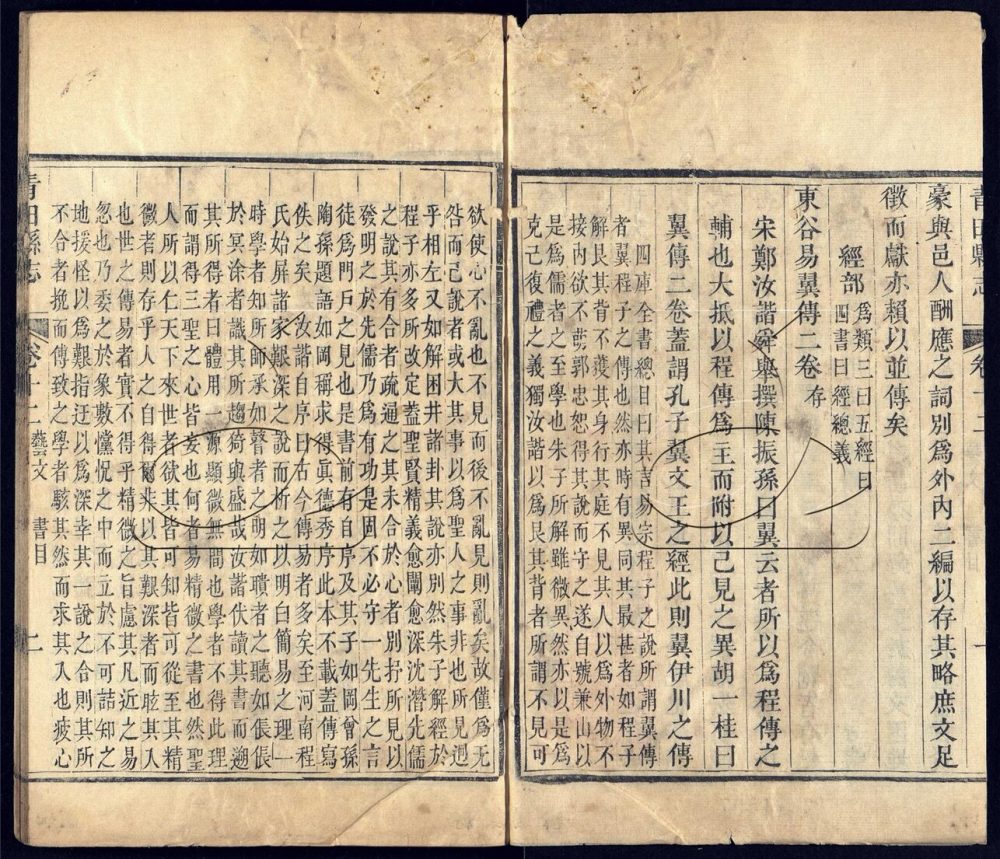 青田縣志
卷十二
一
豪與邑人酬應之詞別為外內二編以存其略庶文足
徵而獻亦賴以並傳矣
經部
為類三曰五經曰
四書曰經總義
東谷易翼傳二卷存
宋鄭汝諧舜舉撰陳振孫曰翼云者所以為程傳之
輔也大抵以程傳為主而附以己見之異胡一桂曰
翼傳二卷蓋謂孔子翼文王之經此則翼伊川之傳
四庫全書總目曰其言易宗程子之說所謂翼傳
者翼程子之傳也然亦時有異同其最甚者如程子
解艮其背不獲其身行其庭不見其人以為外物不
接內欲不萌郭忠恕得其說而守之遂自號兼山以
是為儒者之至學也朱子所解雖微異然亦以是為
克己復禮之義獨汝諧以為艮其背者所謂不見可
欲使心不亂也不見而後不亂見則亂矣故僅為无
咎而已說者或大其事以為聖人之事非也所見迥
乎相左又如解困井諸卦其說亦別然朱子解經於
程子亦多所改定蓋聖賢精義愈闡愈深沈潛先儒
之說其有合者疏通之其未合於心者別抒所見以
發明之於先儒乃為有功是固不必守一先生之言
徒為門戶之見也是書前有自序及其子如岡曾孫
陶孫題語如岡稱求得真德秀序此本不載蓋傳寫
佚之矣 汝諧自序曰古今傳易者多矣至河南程
氏始屏諸家艱深之說而析之以明白簡易之理一
時學者知所師承如瞽者之明如聵者之聽如倀倀
於冥涂者識其所趨猗與盛哉汝諧伏讀其書而遡
其所得者曰體用一源顯微無間也學者不得此理
而謂得三聖之心皆妄也何者易精微之書也然聖
人所以仁天下來世者欲其皆可知皆可從至其精
微者則存乎人之自得爾以其艱深者而眩其人
也世之傳易者實不得乎精微之旨慮其凡近之易
忽也乃委之於象數儻怳之中而立於不可詰知之
地援怪以為艱指迂以為深幸其一說之合則其所
不合者挽而傳致之學者駭其然而求其入也疲心
青田縣志
卷十二藝文
書目
二